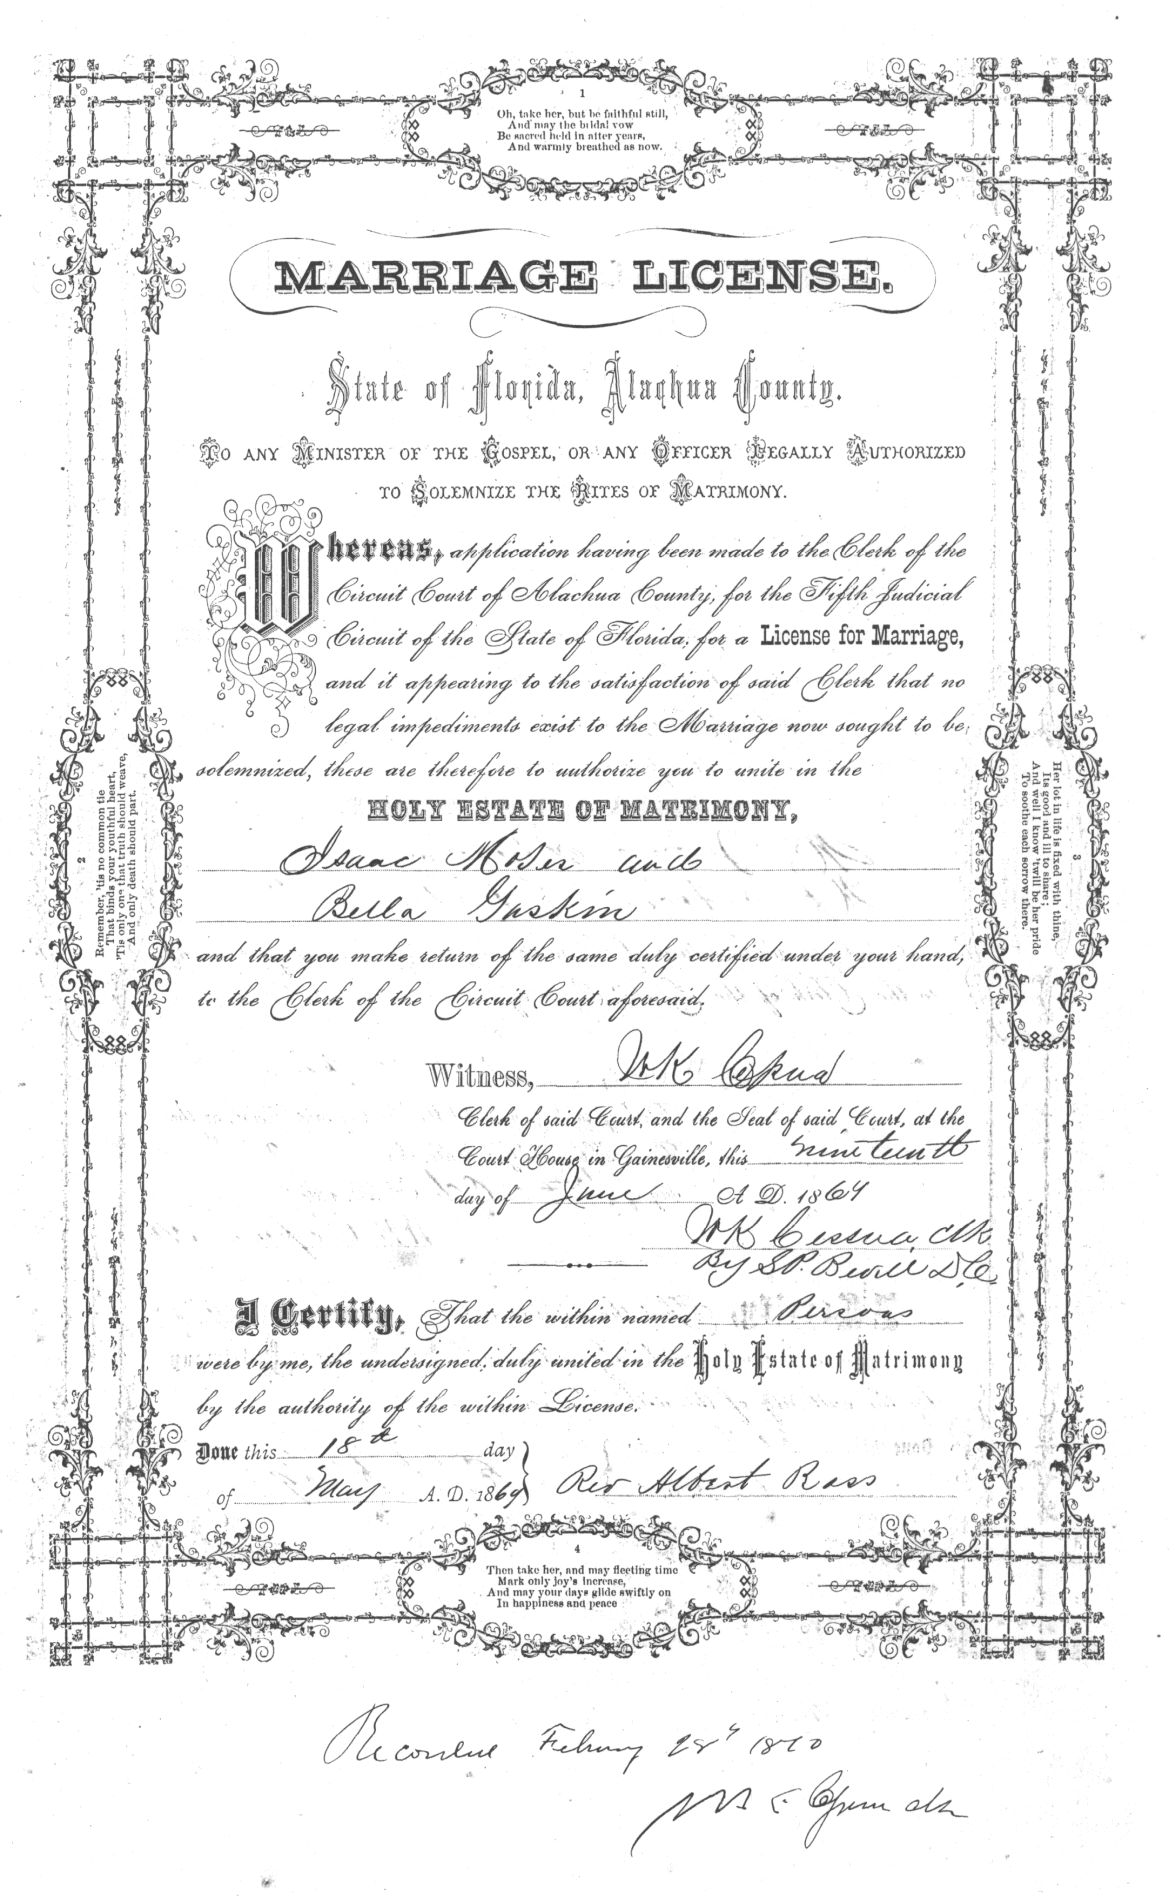 1
Oh, take her, but be faithful still,
And may the bridal vow
Be sacred held in after years,
And warmly breathed as now.
MARRIAGE LICENSE.
State of Florida, Alachua County.
TO ANY MINISTER OF THE GOSPEL, OR ANY OFFICER LEGALLY AUTHORIZED
TO SOLEMNIZE THE RITES OF MATRIMONY.
Whereas, application having been made to the Clerk of the
Circuit Court of Alachua County, for the Fifth Judicial
Circuit of the State of Florida, for a License for Marriage,
and it appearing to the satisfaction of said Clerk that no
legal impediments exist to the Marriage now sought to be
solemnized, these are therefore to authorize you to unite in the
HOLY ESTATE OF MATRIMONY,
Isaac Moser and
Bella Gaskin
and that you make return of the same duly certified under your hand,
to the Clerk of the Circuit Court aforesaid.
2
Remember, 'tis no common tie
That binds your youthful heart,
'Tis only one that truth should weave,
And only death should part.
3
Her lot in life is fixed with thine,
Its good and ill to share;
And well I know 'twill be her pride
To soothe each sorrow there.
Witness, WK Cessna
Clerk of said Court, and the Seal of said Court, at the
Court House in Gainesville, this nineteenth
day of June A. D. 1869
WK Cessna, Clk
By S.P. Bevill D.C.
I Certify, That the within named Persons
were by me, the undersigned, duly united in the Holy Estate of Matrimony
by the authority of the within License.
Done this 18th day
of May A. D. 1869 Rev Albert Rass
4
Then take her, and may fleeting time
Mark only joy's increase,
And may your days glide swiftly on
In happiness and peace
Recorded February 28" 1870
clk